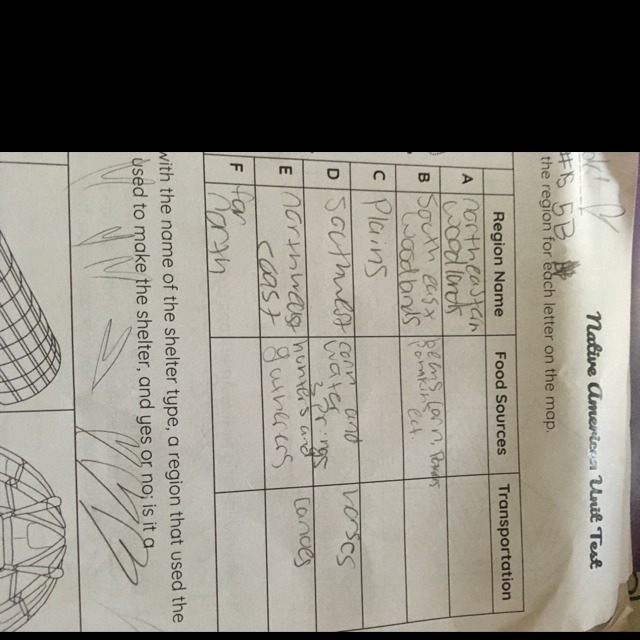 Native American Unit Test
#18 5B
the region for each letter on the map.
Region Name Food Sources Transportation
A northeastern woodlands
B South east woodlands beans, corn,
C Plains
D Southwest corn and water springs horses
E northwest coast hunters and canoes
F far north
with the name of the shelter type, a region that used the
used to make the shelter, and yes or no; is it a